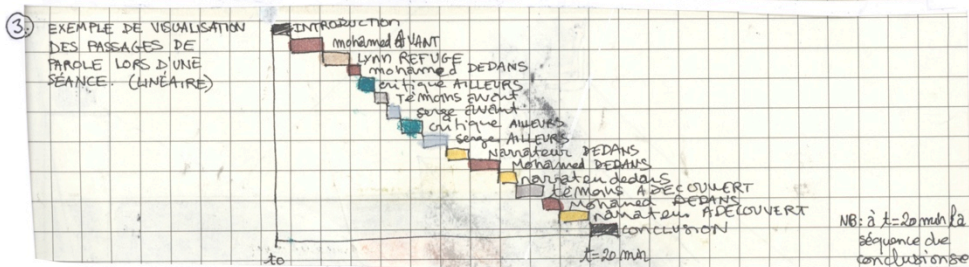 3.
EXEMPLE DE VISUALISATION
DES PASSAGES DE
PAROLE LORS D'UNE
SÉANCE. (LINÉAIRE)
INTRODUCTION
mohamed AVANT
Lynn REFUGE
mohamed DEDANS
critique AILLEURS
témoins avant
serge avant
critique AILLEURS
serge AILLEURS
Narrateur DEDANS
Mohamed DEDANS
narrateur dedans
témoins A DECOUVERT
Mohamed DEDANS
narrateur A DECOUVERT
CONCLUSION
t0
t=20 min
NB: à t=20 min la
séquence de
conclusion se